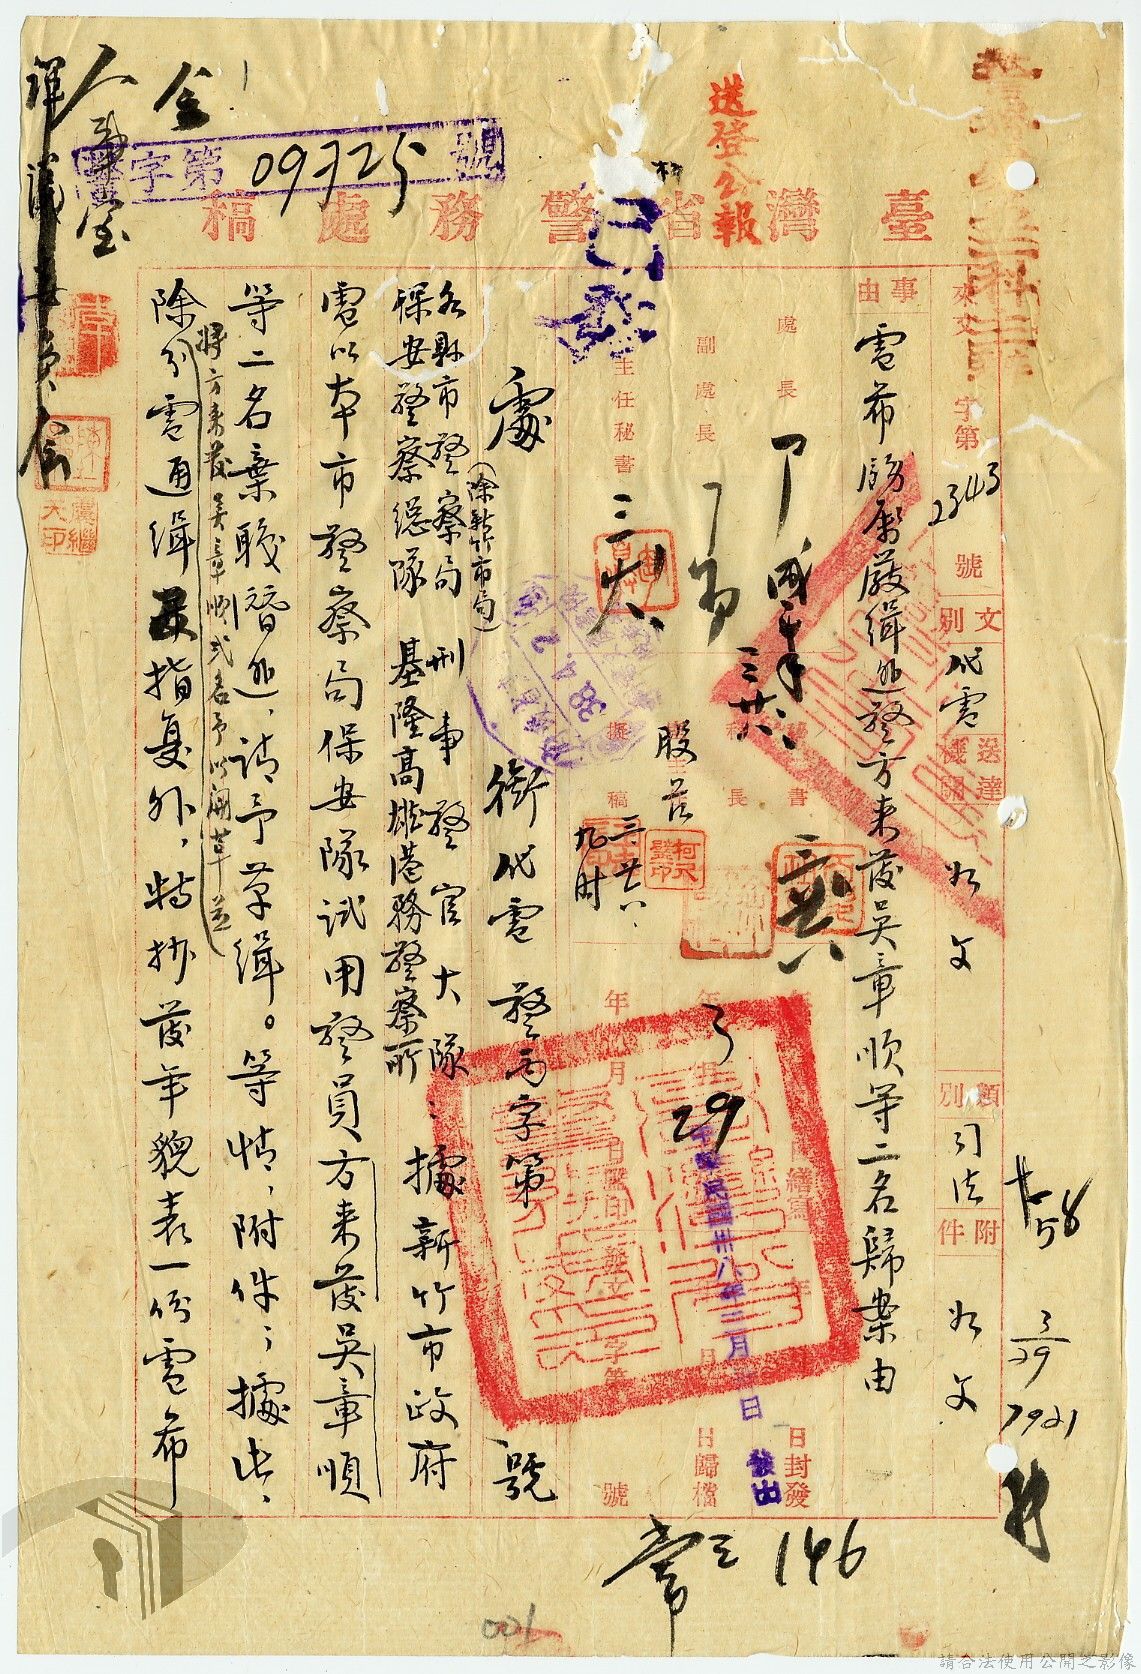 送登公報
警字第09325號
臺灣省警務處稿
來文 字第2343號
文別 代電
送達機關 如文
類別 司法
附件 如文
事由
電希飭屬嚴緝逃警方來發吳章順等二名歸案由
處長
副處長
主任秘書
秘書
擬稿
股長
已發
3 29
中華民國卅八年三月 日 發出
日封發
日歸檔
處銜代電 警丙字第 號
各縣市警察局(除新竹市局)刑事警官大隊、
保安警察總隊 基隆高雄港務警察所
據新竹市政府
電以本市警察局保安隊試用警員方來發吳章順
等二名棄職潛逃,請予革緝。等情,附件;據此,
將方來發吳章順弍名予以開革並
除分電通緝及指复外,特抄發年貌表一份電希
3/29
7921
146
001
38.4.2
請合法使用公開之影像